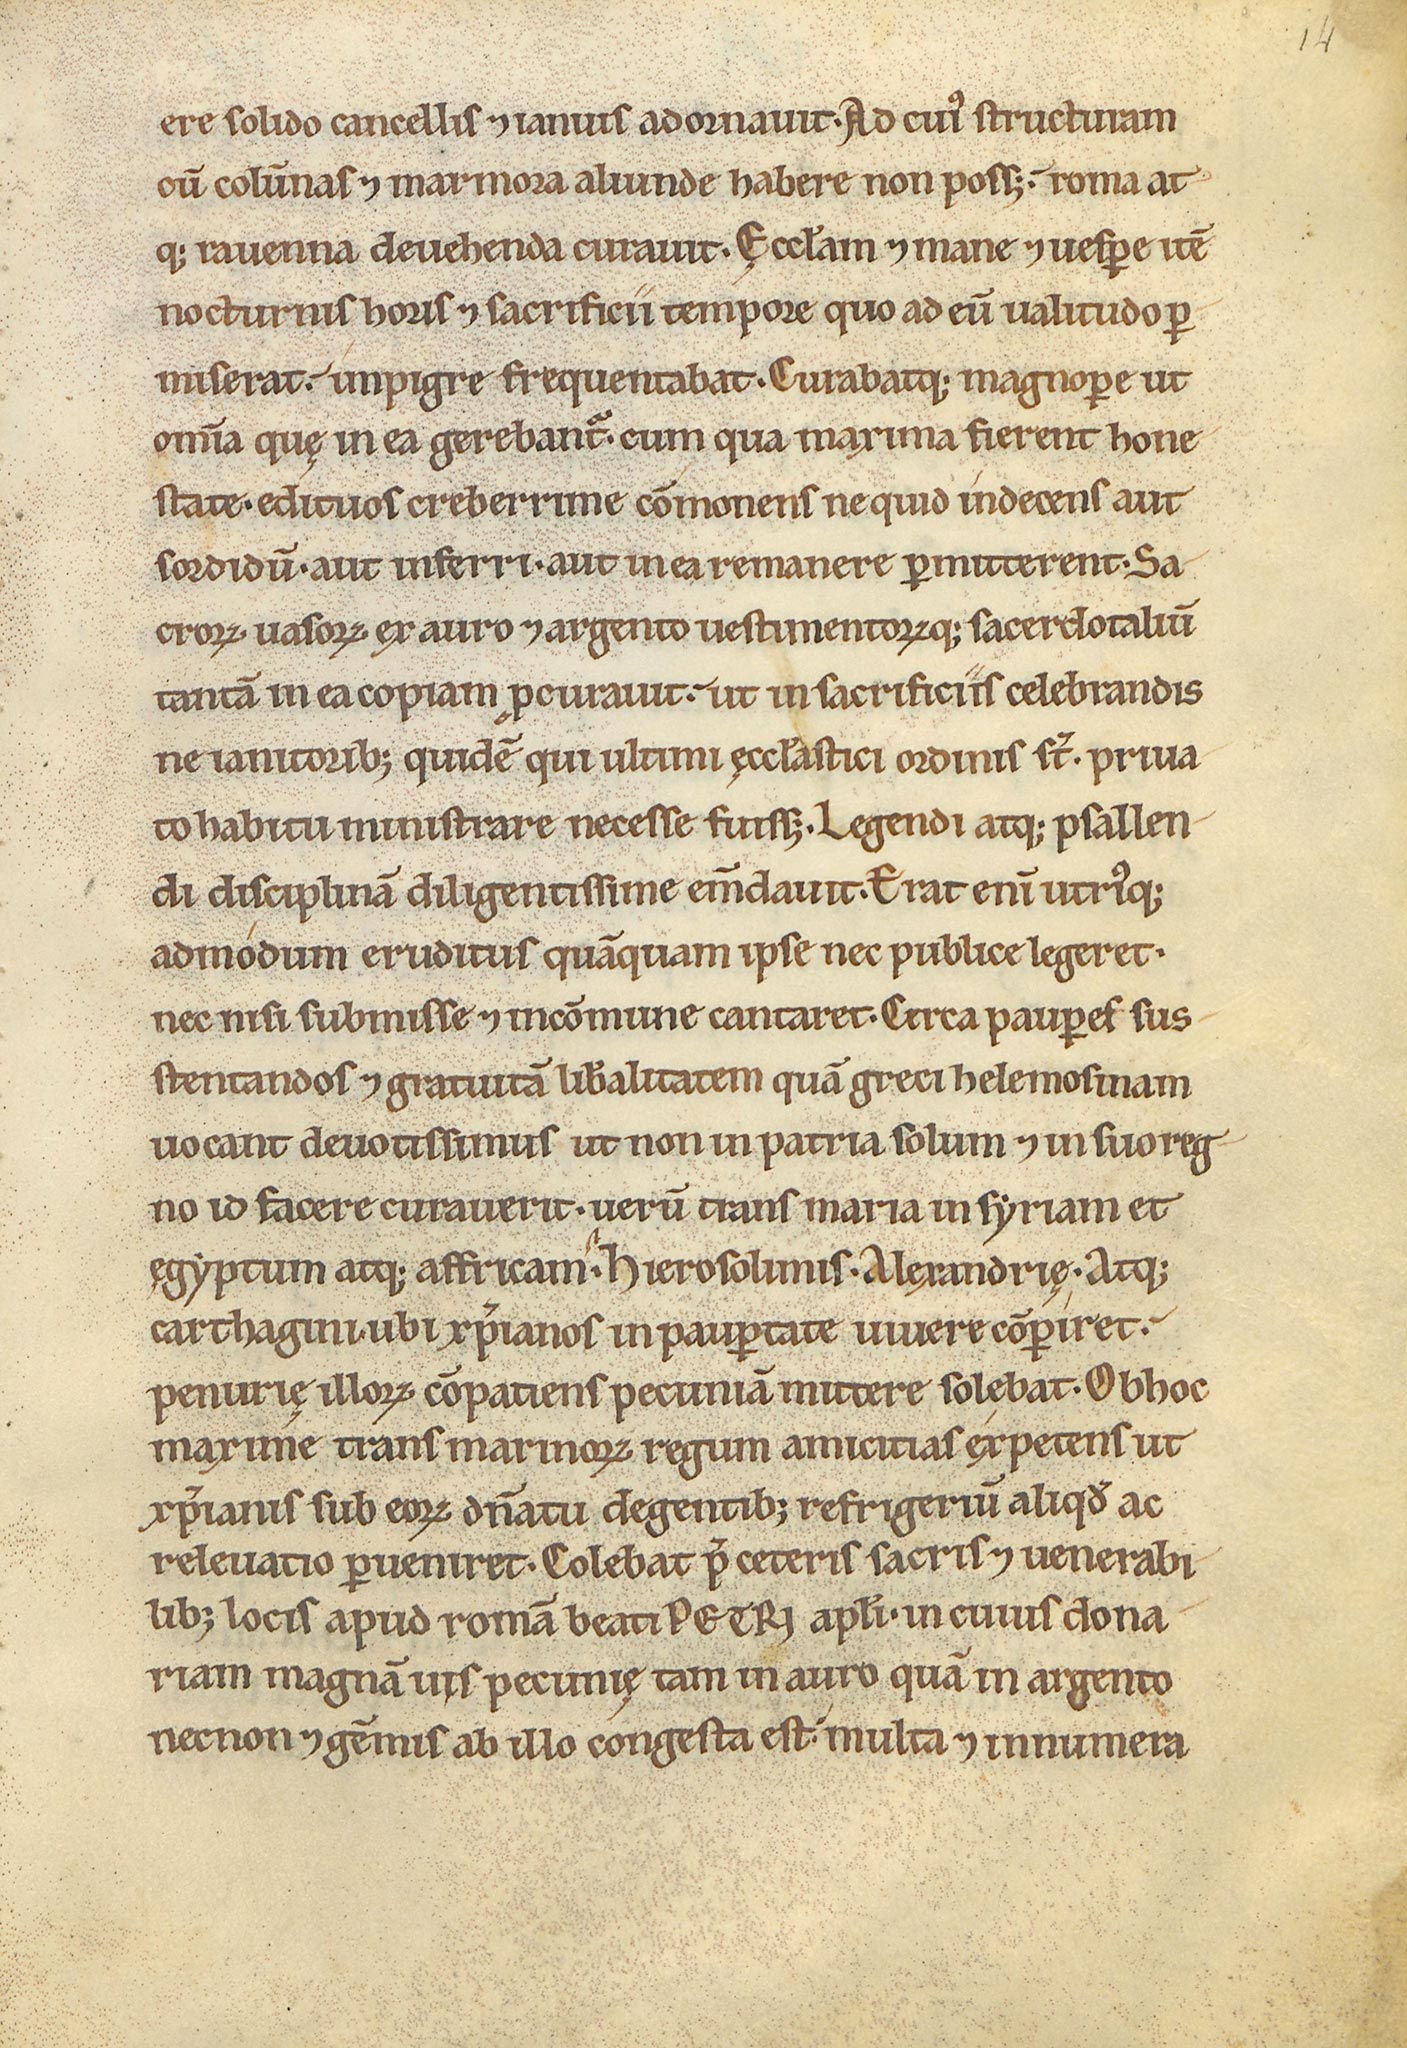 14
ere solido cancellis ⁊ ianuis adornauit. Ad cuiꝰ structuram
cū colūnas ⁊ marmora aliunde habere non possꝫ. roma at
qꝫ rauenna deuehenda curauit. Ęccłam ⁊ mane ⁊ uesꝑe itē
nocturnis horis ⁊ sacrificii tempore quo ad eū ualitudo ꝑ
miserat. inpigre frequentabat. Curabatqꝫ magnoꝑe ut
om̄ia quę in ea gerebant᷑. cum qua maxima fierent hone
state. edituos creberrime cōmonens ne quid indecens aut
sordidū. aut inferri. aut in ea remanere ꝑmitterent. Sa
croꝝ uasoꝝ ex auro ⁊ argento uestimentoꝝqꝫ sacerdotaliū
tantā in ea copiam ꝓcurauit. ut in sacrificiis celebrandis
ne ianitoribꝫ quidē qui ultimi ęccłastici ordinis st̄. priua
to habitu ministrare necesse fuissꝫ. Legendi atqꝫ psallen
di disciplinā diligentissime em̄dauit. Erat enī utriꝰqꝫ
admodum eruditus quāquam ipse nec publice legeret.
nec nisi submisse ⁊ incōmune cantaret. Circa pauꝑes sus
stentandos ⁊ gratuitā lib̄alitatem quā greci helemosinam
uocant deuotissimus ut non in patria solum ⁊ in suo reg
no id facere curauerit. uerū trans maria in syriam et
ęgyptum atqꝫ affricam. Hierosolimis. Alexandrię. Atqꝫ
carthagini. ubi xp̄ianos in pauꝑtate uiuere cōꝑiret.
penurię illoꝝ cōpatiens pecuniā mittere solebat. Ob hoc
maxime trans marinoꝝ regum amicitias expetens ut
xp̄ianis sub eoꝝ dn̄atu degentibꝫ refrigeriū aliqd̄ ac
releuatio ꝑueniret. Colebat p̄ ceteris sacris ⁊ uenerabi
libꝫ locis apud romā beati PETRI apłi. in cuius dona
riam magnā uis pecunię tam in auro quā in argento
necnon ⁊ gēmis ab illo congesta est. multa ⁊ innumera